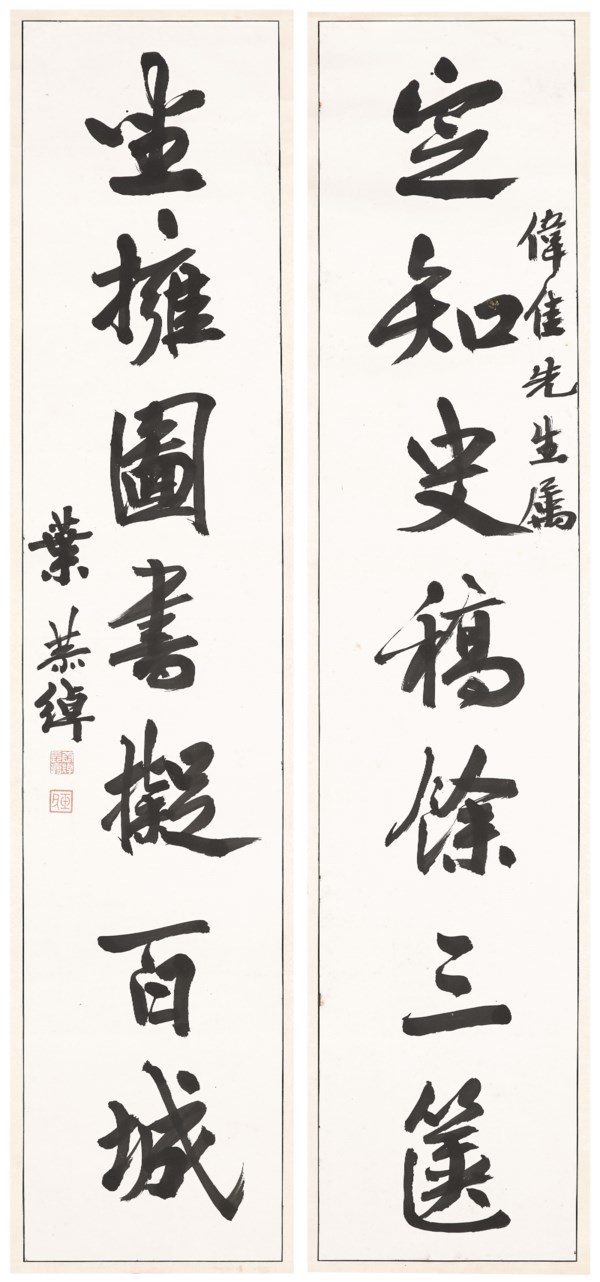 定知史稿餘三篋
偉佳先生属
坐擁圖書擬百城
葉恭綽